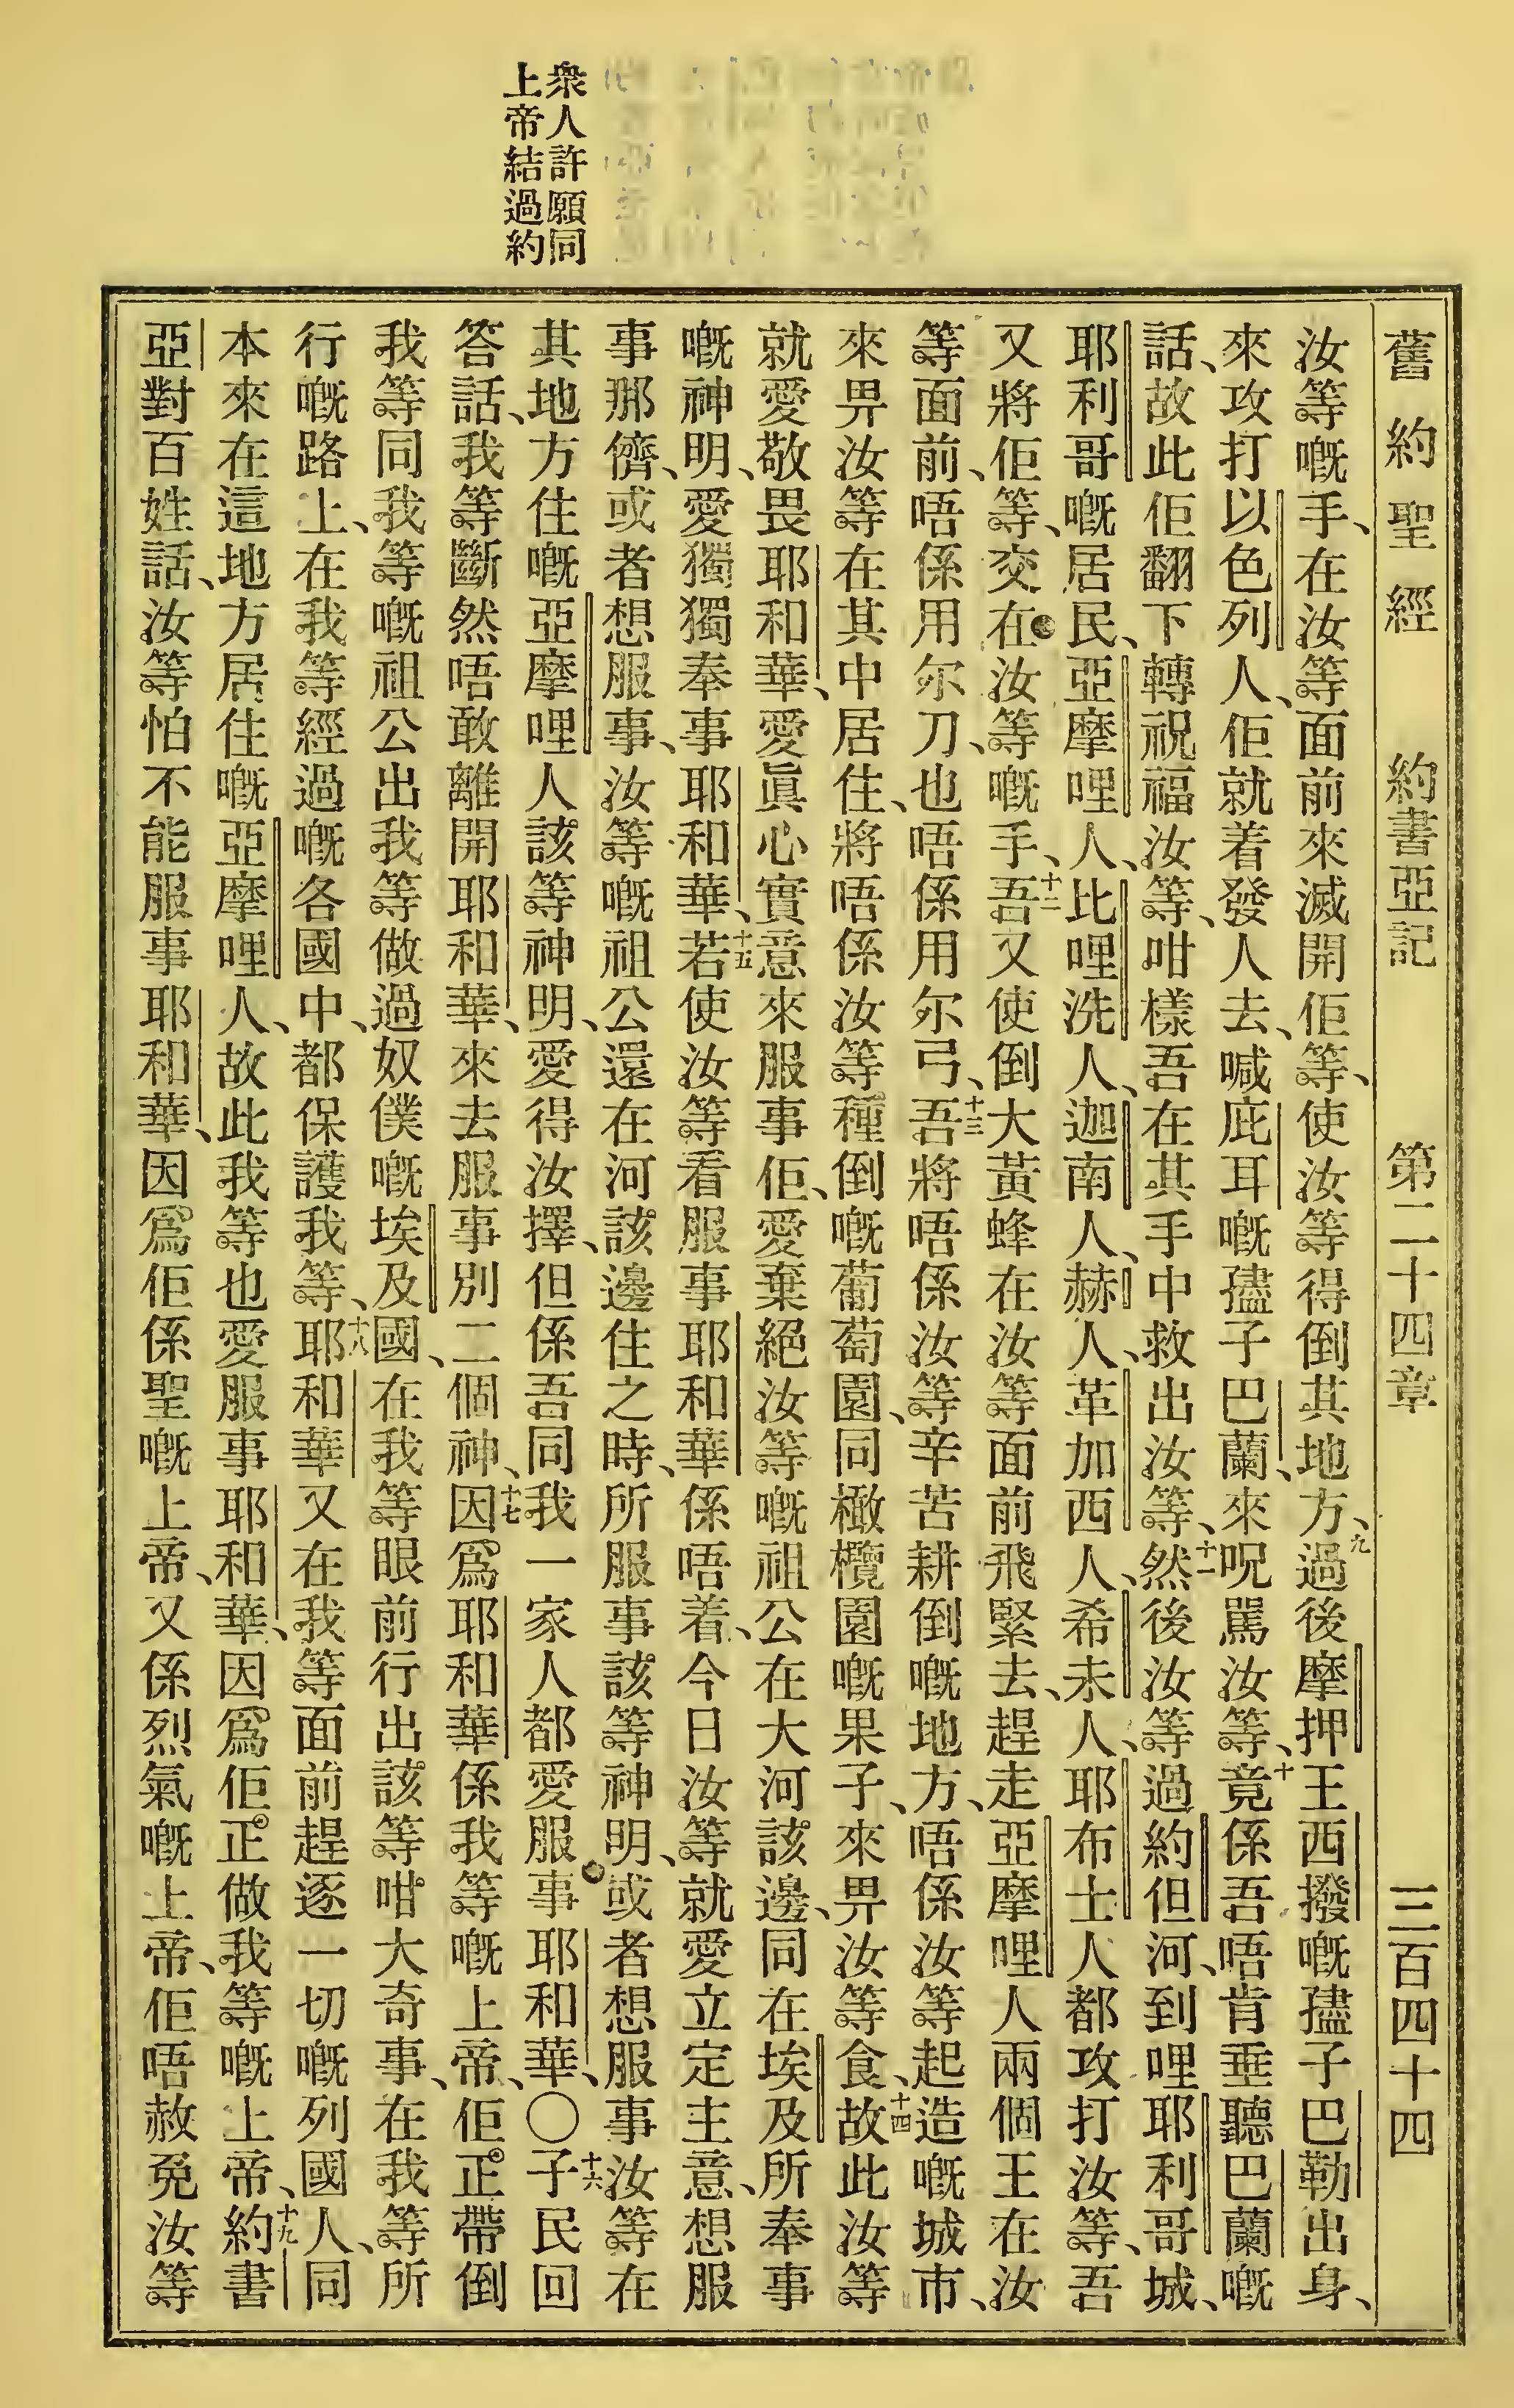 舊約聖經 約書亞記 第二十四章 三百四十四
衆人許願同
上帝結過約
汝等嘅手、在汝等面前來滅開佢等、使汝等得倒其地方、九過後摩押王西撥嘅孻子巴勒出身、
來攻打以色列人、佢就着發人去、喊庇耳嘅孻子巴蘭、來呪罵汝等、十竟係吾唔肯垂聽巴蘭嘅
話、故此佢翻下轉祝福汝等、咁樣吾在其手中救出汝等、十一然後汝等過約但河、到哩耶利哥城、
耶利哥嘅居民、亞摩哩人、比哩洗人、迦南人、赫人、革加西人、希未人、耶布士人都攻打汝等、吾
又將佢等、交在汝等嘅手、十二吾又使倒大黃蜂在汝等面前飛緊去、趕走亞摩哩人兩個王在汝
等面前、唔係用尔刀、也唔係用尔弓、十三吾將唔係汝等辛苦耕倒嘅地方、唔係汝等起造嘅城市、
來畀汝等在其中居住、將唔係汝等種倒嘅葡萄園、同橄欖園嘅果子、來畀汝等食、十四故此汝等
就愛敬畏耶和華、愛眞心實意來服事佢、愛棄絕汝等嘅祖公在大河該邊、同在埃及所奉事
嘅神明、愛獨獨奉事耶和華、十五若使汝等看服事耶和華係唔着、今日汝等就愛立定主意、想服
事那儕、或者想服事、汝等嘅祖公還在河該邊住之時、所服事該等神明、或者想服事汝等在
其地方住嘅亞摩哩人該等神明、愛得汝擇、但係吾同我一家人都愛服事耶和華、〇十六子民回
答話、我等斷然唔敢離開耶和華、來去服事別二個神、十七因爲耶和華係我等嘅上帝、佢正帶倒
我等同我等嘅祖公出我等做過奴僕嘅埃及國、在我等眼前行出該等咁大奇事、在我等所
行嘅路上、在我等經過嘅各國中、都保護我等、十八耶和華又在我等面前趕逐一切嘅列國人、同
本來在這地方居住嘅亞摩哩人、故此我等也愛服事耶和華、因爲佢正做我等嘅上帝、十九約書
亞對百姓話、汝等怕不能服事耶和華、因爲佢係聖嘅上帝、又係烈氣嘅上帝、佢唔赦免汝等